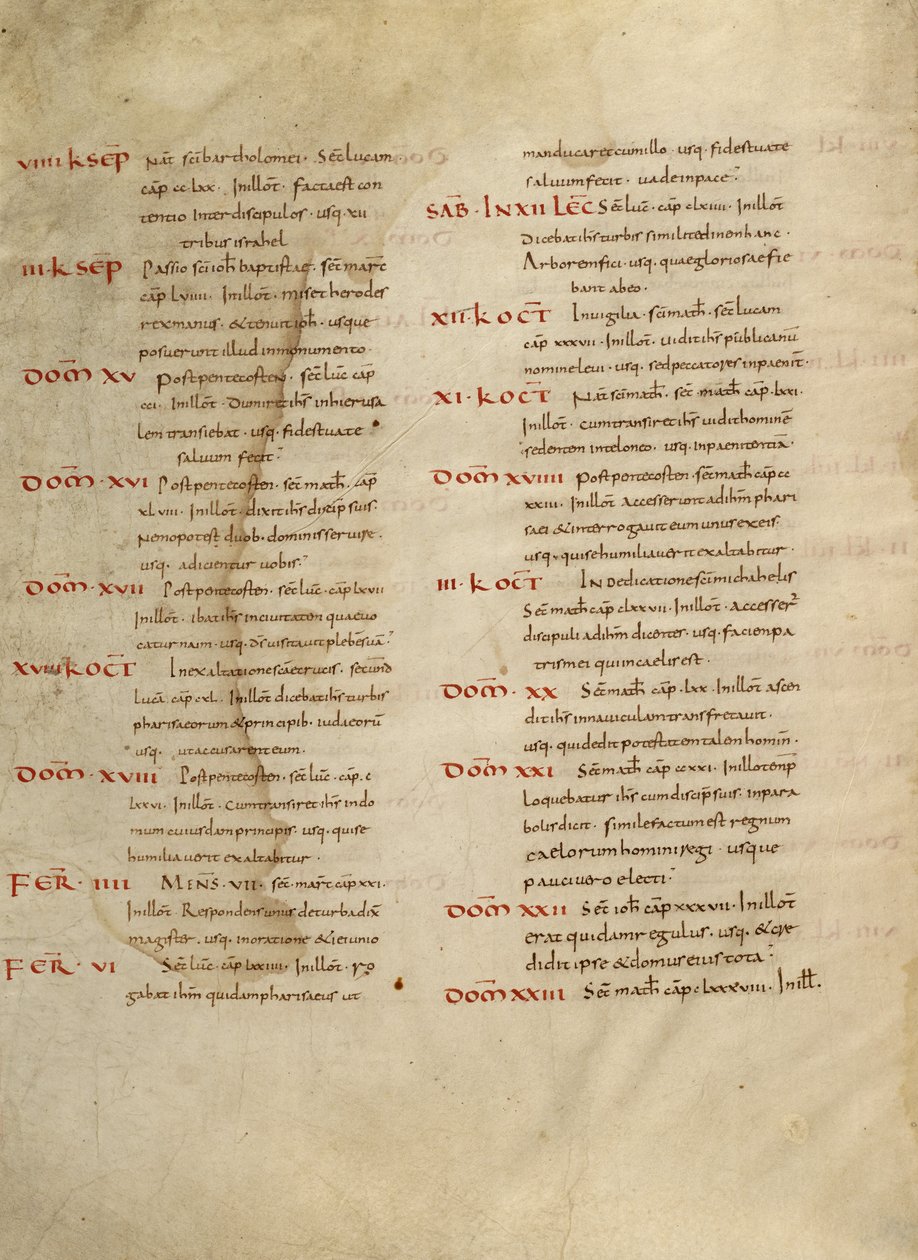 VIIII K SEP̄ Nat̄ sci bartholomei · Sec̄ lucam ·
cap̄ cc lxx · In illot̄ · facta est con
tentio inter discipulos · usq· xii
tribus israhel
III · K SEP̄ Passio sci ioh̄ baptistae · sec̄ marc̄
cap̄ lviiii · In illot̄ · misit herodes
rex manus · & tenuit ioh̄ · usque
posuerunt illud in monumento ·
DOM̄ XV Post pentecosten · sec̄ luc̄ cap̄
cci · In illot̄ · Dum iret ihs in hierusa
lem transiebat · usq· fides tua te
saluum fecit ·
DOM̄ · XVI Post pentecosten · sec̄ math̄ · cap̄
xl viii · In illot̄ · dixit ihs discip̄ suis ·
Nemo potest duob· dominis servire ·
usq· adicientur vobis ·
DOM̄ · XVII Post pentecosten · sec̄ luc̄ · cap̄ lxvii
In illot̄ · ibat ihs in civitatem quae vo
catur naim · usq· ds̄ visitavit plebē suā ·
XVIII K OCT̄ In exaltatione scae crucis · secund
lucā cap̄ cxl · In illot̄ dicebat ihs turbis
pharisaeorum & principib· iudaeorū
usq· ut accusarent eum ·
DOM̄ · XVIII Post pentecosten · sec̄ luc̄ · cap̄ · c
lxxvi · In illot̄ · Cum transiret ihs in do
mum cuiusdam principis · usq· qui se
humiliaverit exaltabitur ·
FER̄ · IIII MENS̄ · VII · sec̄ mart̄ cap̄ xxi ·
In illot̄ · Respondens unus de turba dix̄
magister · usq· in oratione & ieiunio
FER̄ · VI Sec̄ luc̄ · cap̄ lxxiiii · In illot̄ · ro
gabat ihm̄ quidam pharisaeus ut
manducaret cum illo · usq· fides tua te
saluum fecit · vade in pace ·
SAB̄ · IN XII LEC̄ Sec̄ luc̄ · cap̄ clxiiii · In illot̄
Dicebat ihs turbis similitudinem hanc ·
Arborem fici · usq· quae gloriosae fie
bant ab eo ·
XII · K OCT̄ In vigilia · sci math̄ · sec̄ lucam
cap̄ xxxvii · In illot̄ · vidit ihs publicanū
nomine levi · usq· sed peccatores in paenit̄ ·
XI · K OCT̄ Nat̄ sci math̄ · sec̄ math̄ cap̄ · lxxi ·
In illot̄ · cum transiret ihs vidit hominē
sedentem in teloneo · usq· in paenitentiā ·
DOM̄ XVIIII Post pentecosten · sec̄ math̄ cap̄ cc
xxiii · In illot̄ Accesserunt ad ihm̄ phari
saei & interrogavit eum unus ex eis ·
usq· qui se humiliaverit exaltabitur ·
III · K OCT̄ IN Dedicatione sci michahelis
Sec̄ math̄ cap̄ clxxvii · In illot̄ · Accesser̄
discipuli ad ihm̄ dicentes · usq· faciem pa
tris mei qui in caelis est ·
DOM̄ · XX Sec̄ math̄ cap̄ · lxx · In illot̄ ascen
dit ihs in naviculam transfretavit ·
usq· qui dedit potestatem talem homin̄ ·
DOM̄ XXI Sec̄ math̄ cap̄ ccxxi · In illo temp̄
loquebatur ihs cum discip̄ suis · in para
bolis dicit · simile factum est regnum
caelorum homini regi · usque
pauci vero electi ·
DOM̄ XXII Sec̄ ioh̄ cap̄ xxxvii · In illot̄
erat quidam regulus · usq· & cre
didit ipse & domus eius tota ·
DOM̄ XXIII Sec̄ math̄ cap̄ clxxxviii · In ill̄ ·